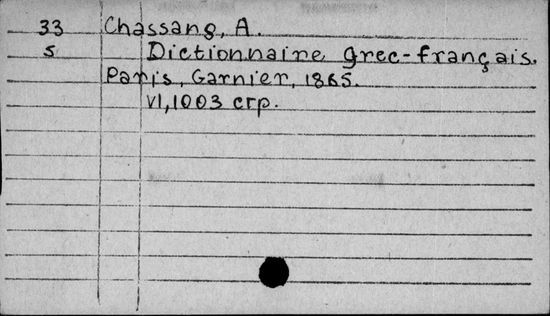 33 Chassang, A.
5 Dictionnaire grec-français.
Paris, Garnier, 1865.
VI, 1003 стр.